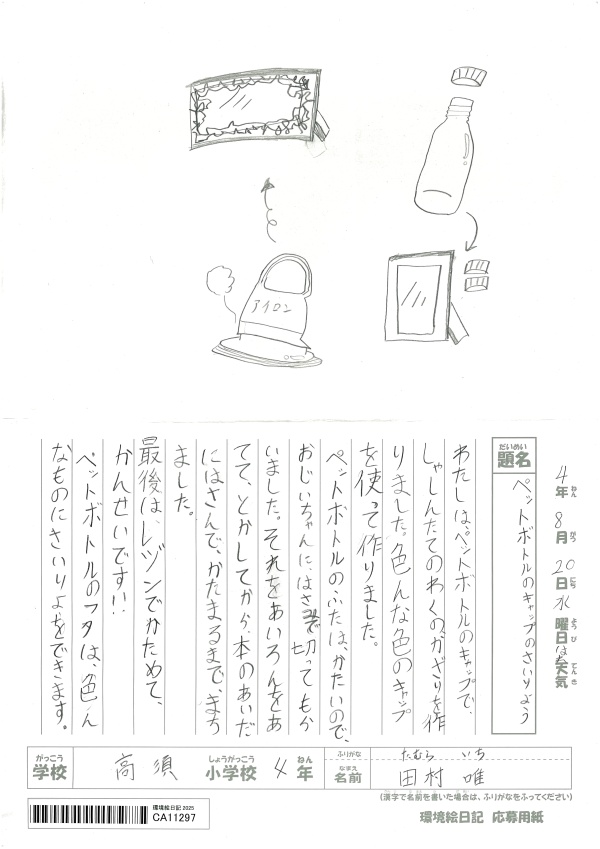 アイロン
4年ねん 8月がつ 20日にち 水曜日ようび はれ天気てんき
だいめい
題名
ペットボトルのキャップのさいりよう
わたしは、ペットボトルのキャップで、
しゃしんたてのわくの、かざりを作
りました。色んな色のキャップ
を使って作りました。
ペットボトルのふたは、かたいので、
おじいちゃんに、はさみで切ってもら
いました。それをあいろんをあ
てて、とかしてから、本のあいだ
にはさんで、かたまるまで、まち
ました。
最後は、レヅンでかためて、
かんせいです!!
ペットボトルのフタは、色ん
なものにさいりよをできます。
がっこう
学校
高須
しょうがっこう
小学校
4年ねん
ふりがな
たむら いち
なまえ
名前
田村 唯
(漢字で名前を書いた場合は、ふりがなをふってください)
環境絵日記 2025
CA11297
環境絵日記 応募用紙